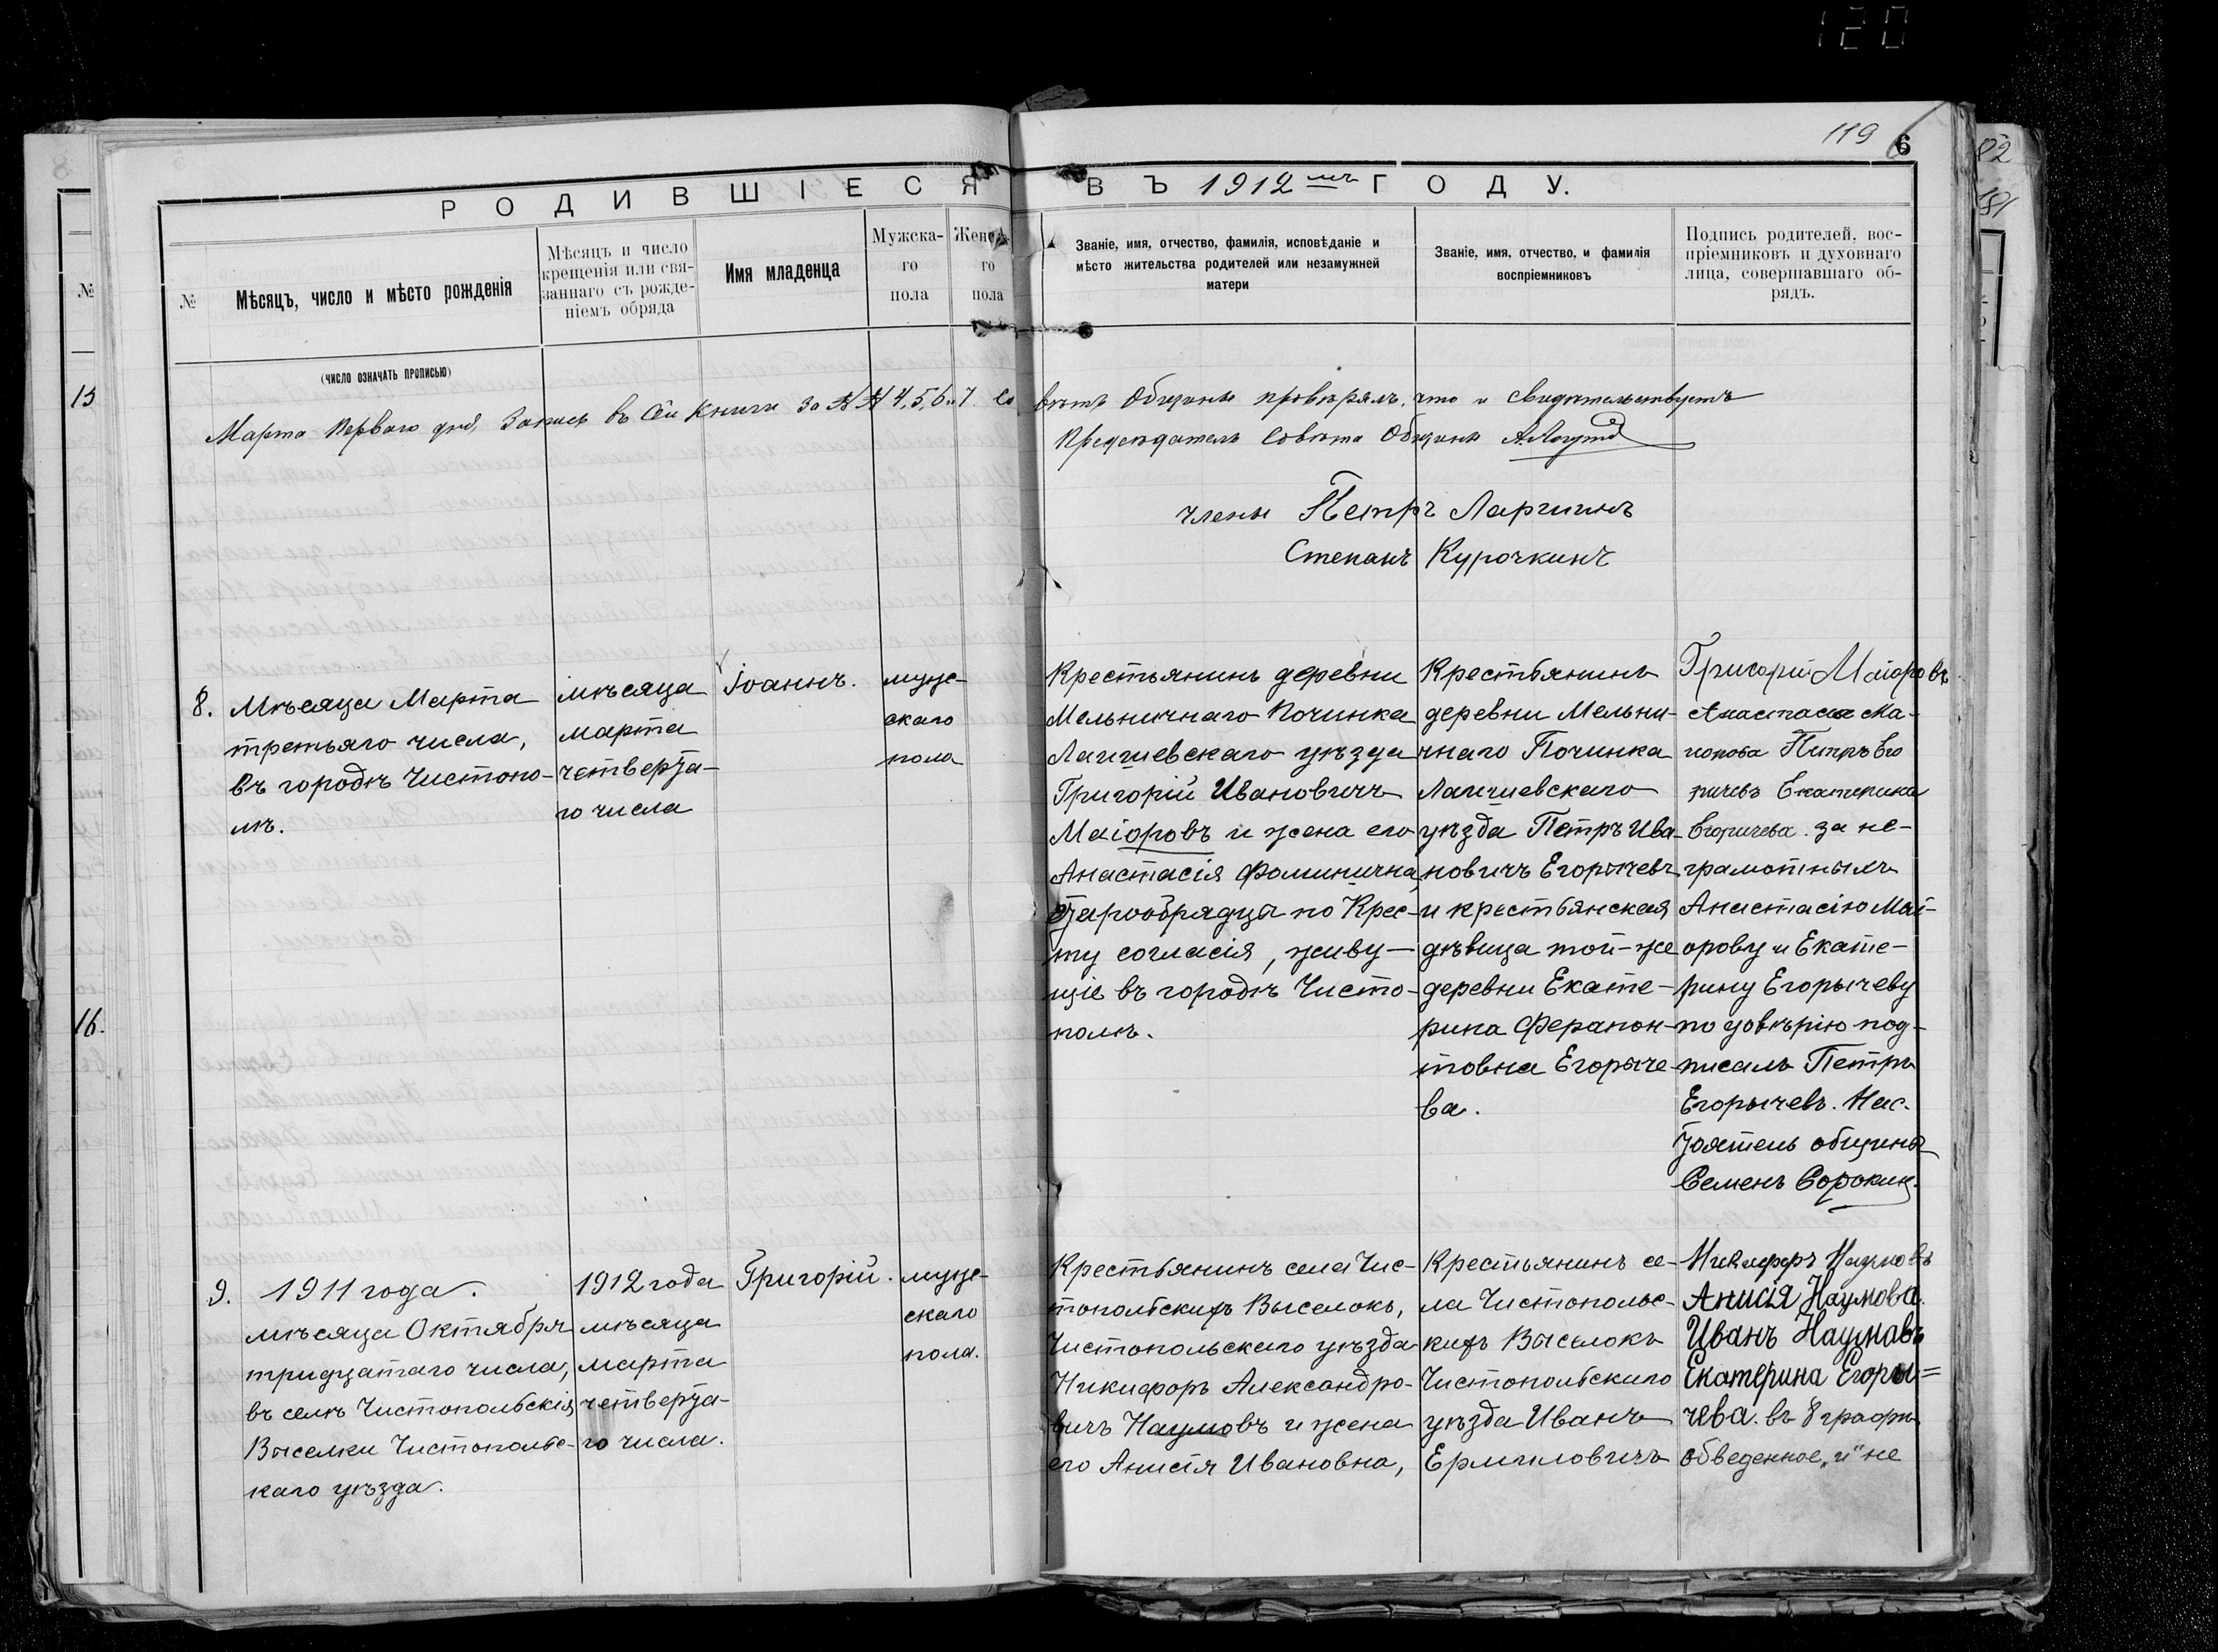 120
119
6
РОДИВШІЕСЯ ВЪ 1912 мъ ГОДУ.
№
Мѣсяцъ, число и мѣсто рожденія
(число означать прописью)
Мѣсяцъ и число
крещенія или свя-
заннаго съ рожде-
ніемъ обряда
Имя младенца
Мужска-
го
пола
Женс
го
пола
Званіе, имя, отчество, фамилія, исповѣданіе и
мѣсто жительства родителей или незамужней
матери
Званіе, имя, отчество, и фамилія
воспріемниковъ
Подпись родителей, вос-
пріемниковъ и духовнаго
лица, совершавшаго об-
рядъ.
Марта Перваго дня, Запись въ Сей Книги За №№ 4, 5, 6 и 7 Совѣтъ Общины провѣрялъ, что и Свидѣтельствуетъ
Предсѣдатель Совѣта Общины
члены Петръ Ларгинъ
Степанъ Курочкинъ
8.
Мѣсяца Марта
третьяго числа,
въ городѣ Чистопо-
лѣ.
мѣсяца
марта
четверта-
го числа
Іоаннъ.
муже-
скаго
пола
Крестьянинъ деревни
Мельничнаго Починка
Лаишевскаго уѣзда
Григорій Ивановичъ
Маіоровъ и жена его
Анастасія Фоминична,
старообрядцы по Крес-
ту согласія, живу-
щіе въ городѣ Чисто-
полѣ.
Крестьянинъ
деревни Мельни-
чнаго Починка
Лаишевскаго
уѣзда Петръ Ива-
новичъ Егорычевъ
и крестьянская
дѣвица той-же
деревни Екате-
рина Ферапон-
товна Егорыче-
ва.
Григорій Маіоровъ
Анастасія Ма-
иорова Петръ Его
ричевъ Екатерина
Егоричева. за не-
грамотныхъ
Анастасію Маі-
орову и Екате-
рину Егорычеву
по довѣрію под-
писалъ Петръ
Егорычевъ. Нас-
тоятель общины
Семенъ Сорокин.
9.
1911 года.
мѣсяца Октября
тридцатаго числа,
въ селѣ Чистопольскія
Выселки Чистопольс-
каго уѣзда.
1912 года
мѣсяца
марта
четверта-
го числа.
Григорій.
муже-
скаго
пола.
Крестьянинъ села Чис-
топольскихъ Выселокъ,
Чистопольскаго уѣзда
Никифоръ Александро-
вичъ Наумовъ и жена
его Анисія Ивановна,
Крестьянинъ се-
ла Чистопольс-
кихъ Выселокъ
Чистопольскаго
уѣзда Иванъ
Ермиловичъ
Никифоръ Наумовъ
Анисія Наумова.
Иванъ Наумавъ
Екатерина Егоры=
чева. въ 8 графѣ
обведенное "и" не
15
16.
№
82
181